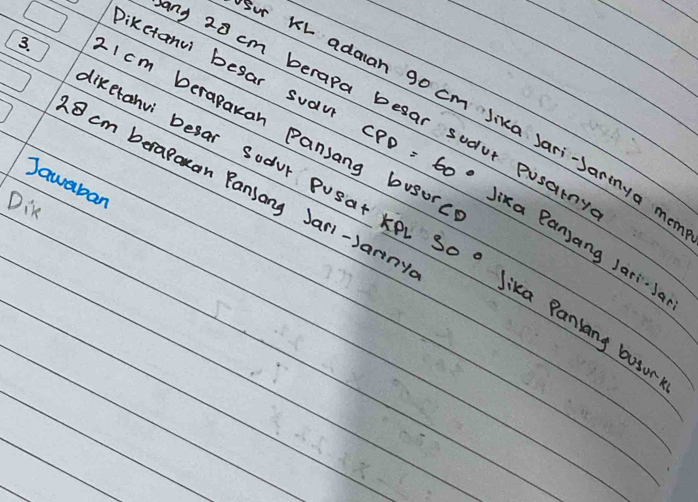 usur KL adalah 90 cm Jika Jari-Jarinya mempu
jang 28 cm berapa besar sudut Pusatnya
Diketahui besar sudut CPD = 60° Jika Panjang Jari-Jari
21 cm berapakah Panjang busur CD
3. diketahui besar sudut Pusat KPL 30° Jika Panjang busur KL
28 cm berapakah Panjang Jari-Jarinya
Jawaban
Dik